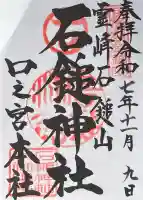 奉拝令和七年十一月九日
霊峰石鎚山
石鎚神社
口之宮本社